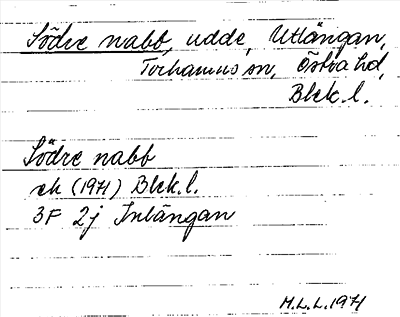 Södre nabb, udde, Utlängan,
Torhamns sn, Östra hd,
Blek.l.
Södre nabb
ek (1971) Blek.l.
3F 2j Inlängan
M.L.L. 1971